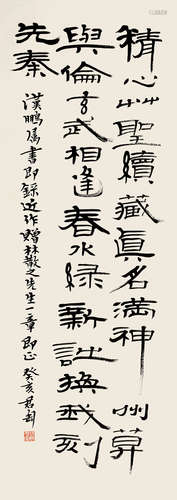 精心艸聖續藏真名滿神州算
與倫玄武相逢春水綠新詩換我刻
先秦
漢鵬屬書即錄近作贈林散之先生一章即正 癸亥君匋